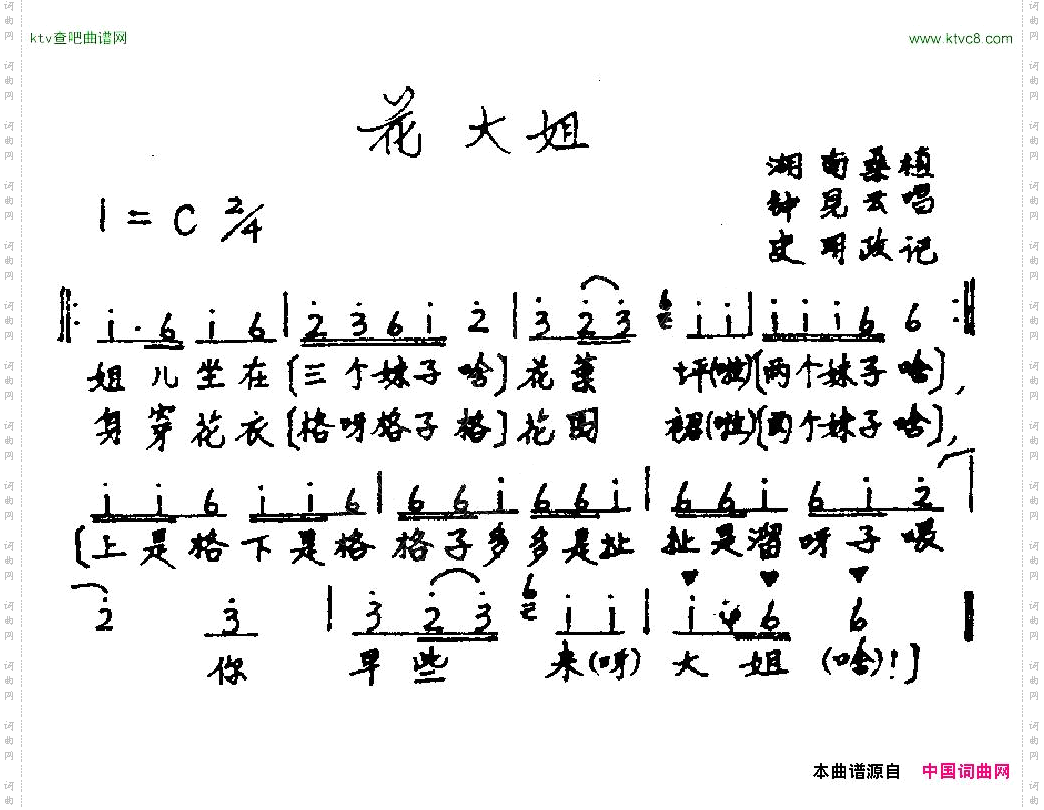 ktv查吧曲谱网
www.ktvc8.com
花大姐
湖南桑植
钟昆云唱
史明政记
1 = C 2/4
‖: i· 6 i 6 | 2̇ 3̇ 6 i 2̇ | 3̇ 2̇ 3̇ 6 i i | i i i 6 6 :‖
姐儿坐在〔三个妹子啥〕花葉 坪(啦)〔两个妹子啥〕,
身穿花衣〔格呀格子格〕花围 裙(啦)〔两个妹子啥〕,
i i 6 i i 6 | 6 6 i 6 6 i | 6 6 i 6 i 2̇ |
〔上是格下是格格子多多是扯扯是溜呀子喂
2̇ 3̇ | 3̇ 2̇ 3̇ 6 i i | i i 6 6 ‖
你 早些 来(呀)大姐(啥)!〕
本曲谱源自 中国词曲网
词曲网